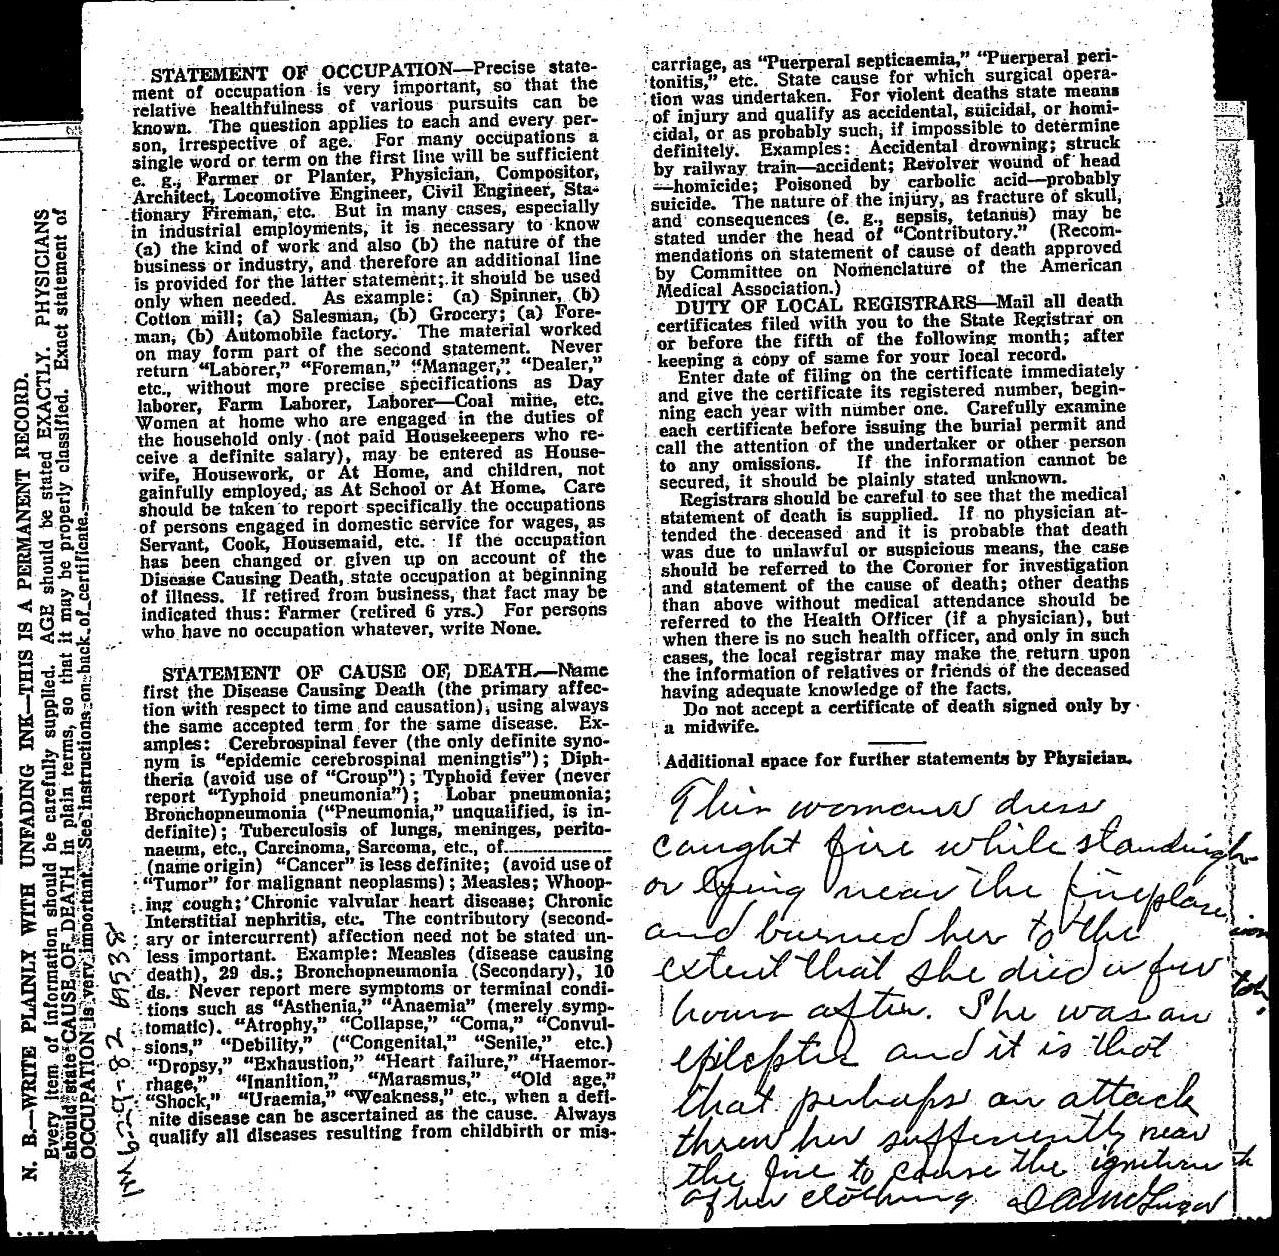 N. B.—WRITE PLAINLY WITH UNFADING INK—THIS IS A PERMANENT RECORD.
Every item of information should be carefully supplied. AGE should be stated EXACTLY. PHYSICIANS
should state CAUSE OF DEATH in plain terms, so that it may be properly classified. Exact statement of
OCCUPATION is very important. See instructions on back of certificate.
STATEMENT OF OCCUPATION—Precise state-
ment of occupation is very important, so that the
relative healthfulness of various pursuits can be
known. The question applies to each and every per-
son, irrespective of age. For many occupations a
single word or term on the first line will be sufficient
e. g., Farmer or Planter, Physician, Compositor,
Architect, Locomotive Engineer, Civil Engineer, Sta-
tionary Fireman, etc. But in many cases, especially
in industrial employments, it is necessary to know
(a) the kind of work and also (b) the nature of the
business or industry, and therefore an additional line
is provided for the latter statement; it should be used
only when needed. As example: (a) Spinner, (b)
Cotton mill; (a) Salesman, (b) Grocery; (a) Fore-
man, (b) Automobile factory. The material worked
on may form part of the second statement. Never
return "Laborer," "Foreman," "Manager," "Dealer,"
etc., without more precise specifications as Day
laborer, Farm Laborer, Laborer—Coal mine, etc.
Women at home who are engaged in the duties of
the household only (not paid Housekeepers who re-
ceive a definite salary), may be entered as House-
wife, Housework, or At Home, and children, not
gainfully employed, as At School or At Home. Care
should be taken to report specifically the occupations
of persons engaged in domestic service for wages, as
Servant, Cook, Housemaid, etc. If the occupation
has been changed or given up on account of the
Disease Causing Death, state occupation at beginning
of illness. If retired from business, that fact may be
indicated thus: Farmer (retired 6 yrs.) For persons
who have no occupation whatever, write None.
STATEMENT OF CAUSE OF DEATH.—Name
first the Disease Causing Death (the primary affec-
tion with respect to time and causation), using always
the same accepted term for the same disease. Ex-
amples: Cerebrospinal fever (the only definite syno-
nym is "epidemic cerebrospinal meningtis"); Diph-
theria (avoid use of "Croup"); Typhoid fever (never
report "Typhoid pneumonia"); Lobar pneumonia;
Bronchopneumonia ("Pneumonia," unqualified, is in-
definite); Tuberculosis of lungs, meninges, perito-
naeum, etc., Carcinoma, Sarcoma, etc., of
(name origin) "Cancer" is less definite; (avoid use of
"Tumor" for malignant neoplasms); Measles; Whoop-
ing cough; Chronic valvular heart disease; Chronic
Interstitial nephritis, etc. The contributory (second-
ary or intercurrent) affection need not be stated un-
less important. Example: Measles (disease causing
death), 29 ds.; Bronchopneumonia (Secondary), 10
ds. Never report mere symptoms or terminal condi-
tions such as "Asthenia," "Anaemia" (merely symp-
tomatic). "Atrophy," "Collapse," "Coma," "Convul-
sions," "Debility," ("Congenital," "Senile," etc.)
"Dropsy," "Exhaustion," "Heart failure," "Haemor-
rhage," "Inanition," "Marasmus," "Old age,"
"Shock," "Uraemia," "Weakness," etc., when a defi-
nite disease can be ascertained as the cause. Always
qualify all diseases resulting from childbirth or mis-
carriage, as "Puerperal septicaemia," "Puerperal peri-
tonitis," etc. State cause for which surgical opera-
tion was undertaken. For violent deaths state means
of injury and qualify as accidental, suicidal, or homi-
cidal, or as probably such, if impossible to determine
definitely. Examples: Accidental drowning; struck
by railway train—accident; Revolver wound of head
—homicide; Poisoned by carbolic acid—probably
suicide. The nature of the injury, as fracture of skull,
and consequences (e. g., sepsis, tetanus) may be
stated under the head of "Contributory." (Recom-
mendations on statement of cause of death approved
by Committee on Nomenclature of the American
Medical Association.)
DUTY OF LOCAL REGISTRARS—Mail all death
certificates filed with you to the State Registrar on
or before the fifth of the following month; after
keeping a copy of same for your local record.
Enter date of filing on the certificate immediately
and give the certificate its registered number, begin-
ning each year with number one. Carefully examine
each certificate before issuing the burial permit and
call the attention of the undertaker or other person
to any omissions. If the information cannot be
secured, it should be plainly stated unknown.
Registrars should be careful to see that the medical
statement of death is supplied. If no physician at-
tended the deceased and it is probable that death
was due to unlawful or suspicious means, the case
should be referred to the Coroner for investigation
and statement of the cause of death; other deaths
than above without medical attendance should be
referred to the Health Officer (if a physician), but
when there is no such health officer, and only in such
cases, the local registrar may make the return upon
the information of relatives or friends of the deceased
having adequate knowledge of the facts.
Do not accept a certificate of death signed only by
a midwife.
Additional space for further statements by Physician.
This womans dress
caught fire while standing
or lying near the fireplace
and burned her to the
extent that she died a few
hours after. She was an
epileptic and it is that
that perhaps an attack
threw her sufficiently near
the fire to cause the ignition
of her clothing